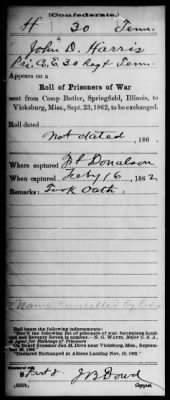 (Confederate.)
H 30 Tenn.
John D. Harris
Pvt, Co. E, 30 Regt Tenn.
Appears on a
Roll of Prisoners of War
sent from Camp Butler, Springfield, Illinois, to
Vicksburg, Miss., Sept. 23, 1862, to be exchanged.
Roll dated
Not dated, 186 .
Where captured Ft Donalson
When captured Feby 16, 1862
Remarks: Took Oath.
Name cancelled by line
Roll bears the following indorsements:
J B Dowd
Copyist.